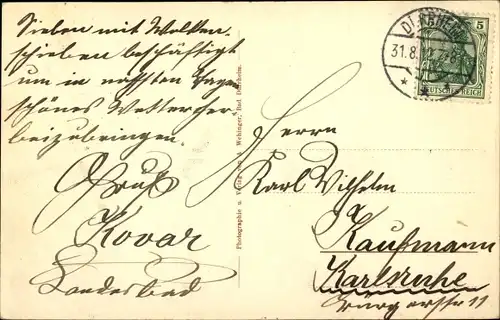 Sieben mit Wolken-
schieben beschäftigt
um in nächsten Tagen
schönes Wetter her
beizubringen.
Gruß
Kovar
Landesbad
Photographie u. Verlag von Wehinger, Bad Dürrheim.
DÜRRHEIM
31.8.
5
DEUTSCHES REICH
Herrn
Karl Wilhelm
Kaufmann
Karlsruhe
Bürgerstr 11